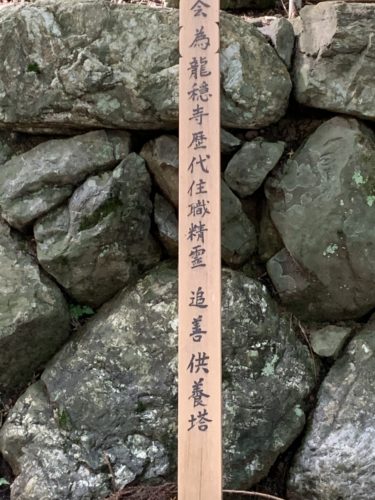 会 為龍穏寺歴代住職精霊 追善供養塔